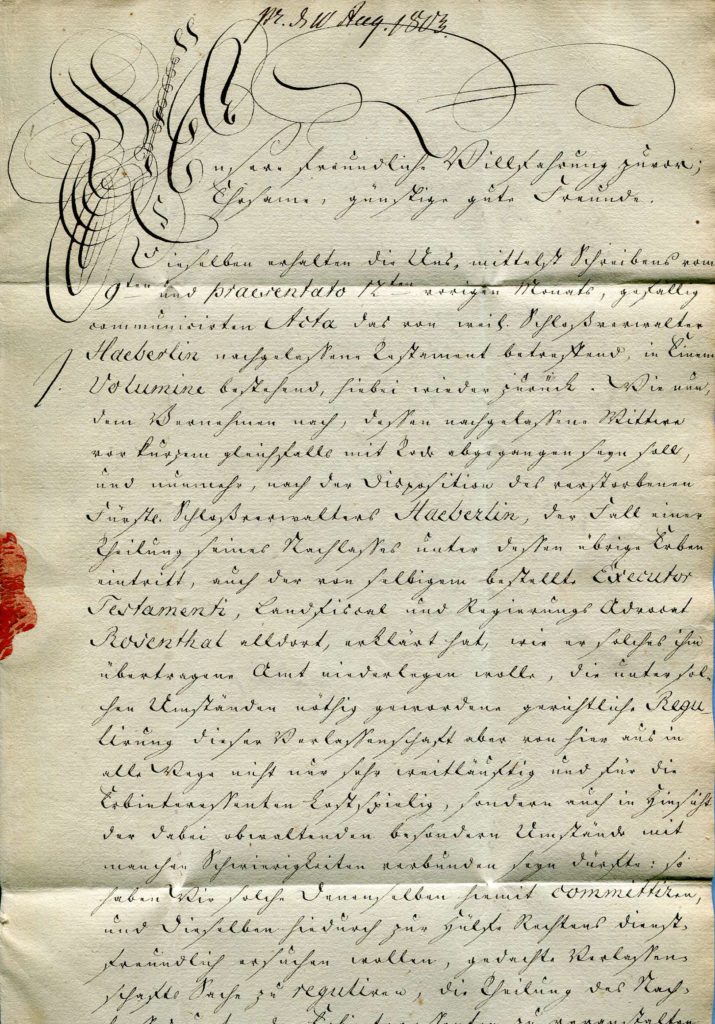 pr. d. 10 Aug. 1803.
Unsere freundliche Willfahrung zuvor;
Ehrsame, günstige gute Freunde.
Dieselben erhalten die Uns, mittelst Schreibens vom
9ten und praesentato 12ten vorigen Monats, gefällig
communicirten Acta das von weil. Schloßverwalter
Haeberlin nachgelassene Testament betreffend, in Einem
Volumine bestehend, hiebei wieder zurück. Wie nun,
dem Vernehmen nach, dessen nachgelassene Wittwe
vor kurzem gleichfalls mit Tode abgegangen seyn soll,
und nunmehr, nach der Disposition des verstorbenen
Fürstl. Schloßverwalters Haeberlin, der Fall einer
Theilung seines Nachlasses unter dessen übrige Erben
eintritt, auch der von selbigem bestellte Executor
Testamenti, Landfiscal und Regierungs Advocat
Rosenthal alldort, erklärt hat, wie er solches ihm
übertragene Amt niederlegen wolle, die unter sol-
chen Umständen nöthig gewordene gerichtliche Regu-
lirung dieser Verlassenschaft aber von hier aus in
alle Wege nicht nur sehr weitläuftig und für die
Erbinteressenten kostspielig, sondern auch in Hinsicht
der dabei obwaltenden besondern Umstände mit
manchen Schwierigkeiten verbunden seyn dürfte: so
haben Wir solche Denenselben hiemit committiren,
und Dieselben hiedurch zur Hülfe Rechtens dienst-
freundlich ersuchen wollen, gedachte Verlassen-
schafts Sache zu reguliren, die Theilung des Nach-